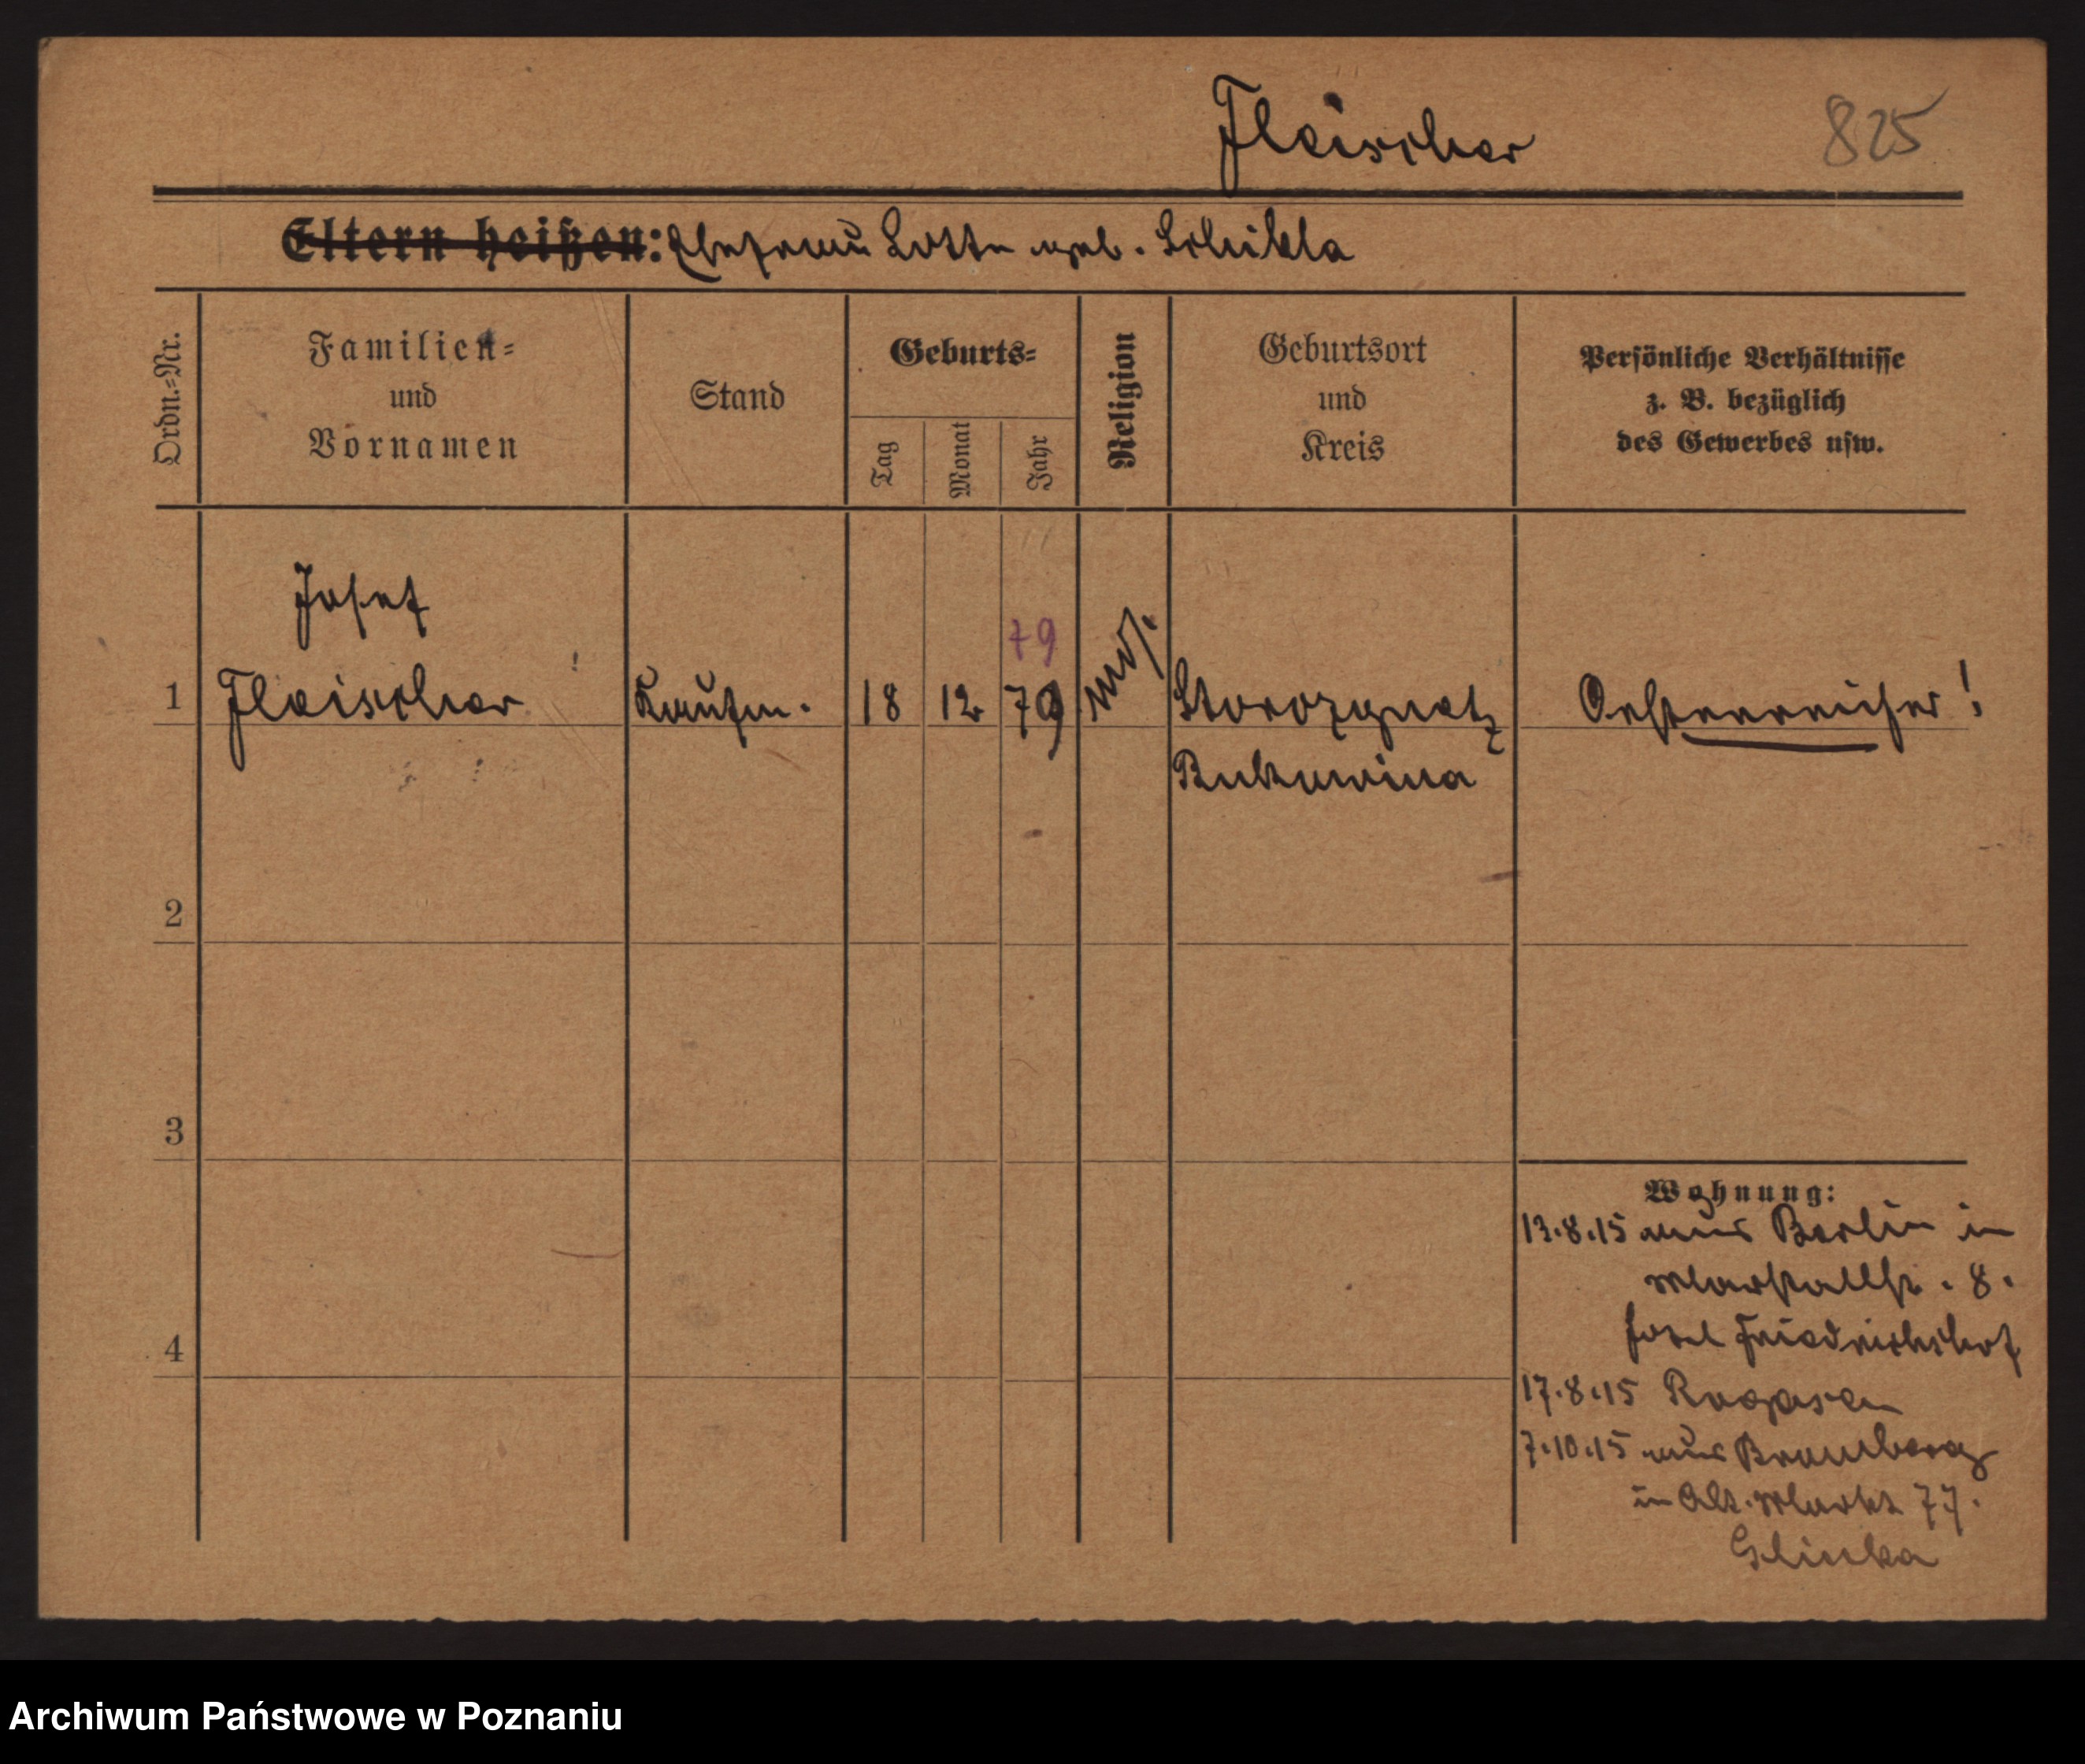 Fleischer
825
Eltern heißen: Ehefrau Lotte geb. Schikla
Ordn.=Nr.
Familien=
und
Vornamen
Stand
Geburts=
Tag
Monat
Jahr
Religion
Geburtsort
und
Kreis
Persönliche Verhältnisse
z. B. bezüglich
des Gewerbes usw.
Josef
79
1 Fleischer Kaufm. 18 12 79 mos. Storozynetz Oesterreicher!
Bukowina
2
3
4
Wohnung:
13.8.15 aus Berlin in
Marstallstr. 8.
Hotel Friedrichshof
17.8.15 Rogasen
7.10.15 aus Bromberg
in Alt. Markt 77.
Glinka
Archiwum Państwowe w Poznaniu